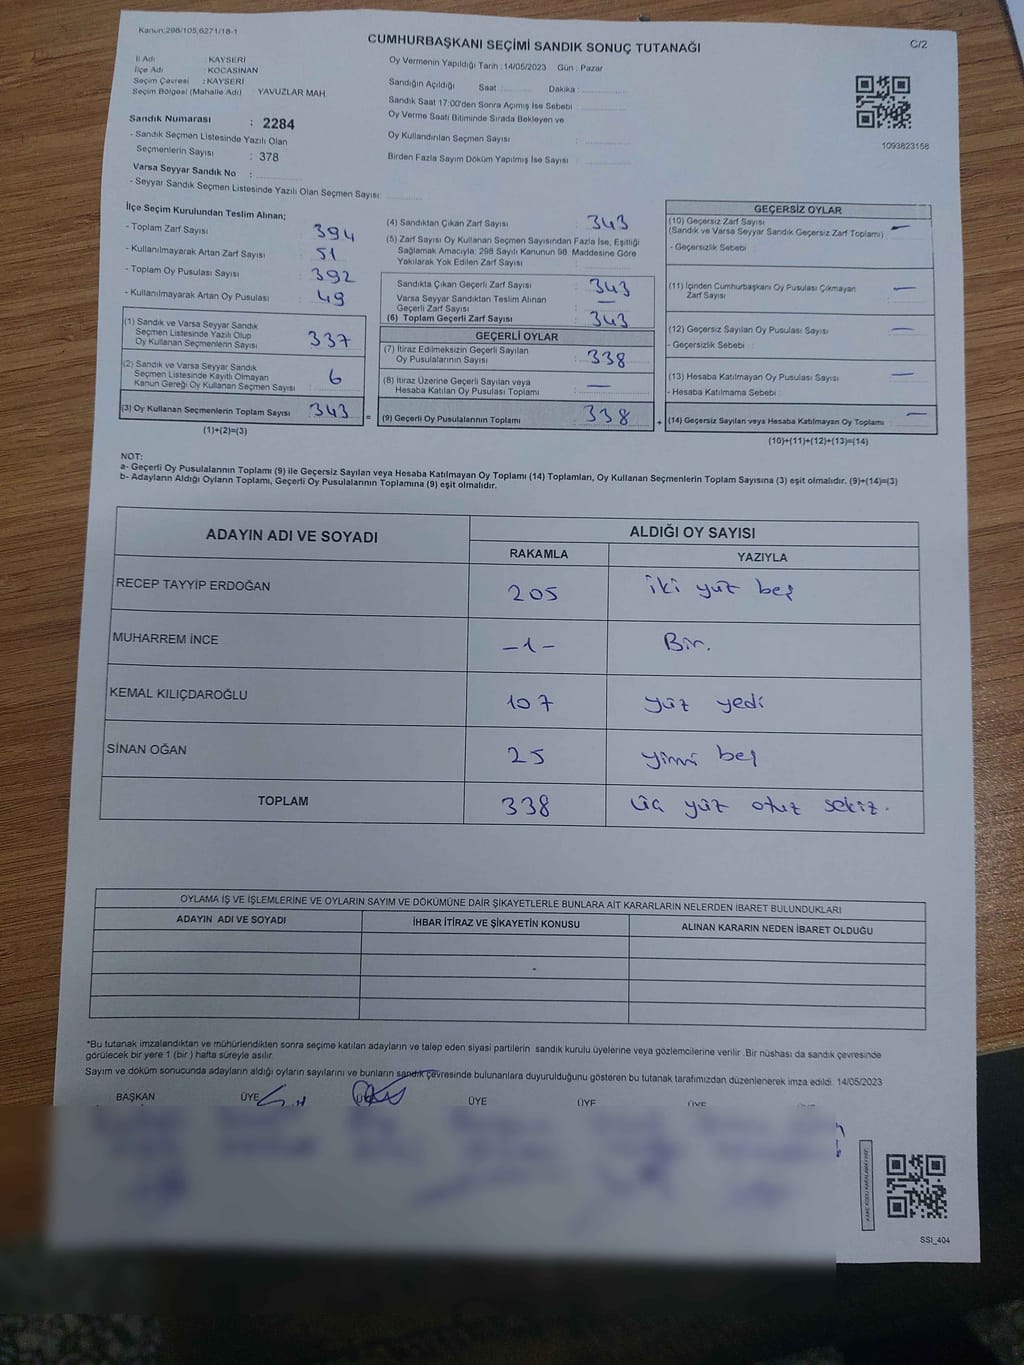 Kanun:298/105,6271/18-1
CUMHURBAŞKANI SEÇİMİ SANDIK SONUÇ TUTANAĞI
C/2
İl Adı : KAYSERİ
İlçe Adı : KOCASİNAN
Seçim Çevresi : KAYSERİ
Seçim Bölgesi (Mahalle Adı) : YAVUZLAR MAH.
Sandık Numarası : 2284
- Sandık Seçmen Listesinde Yazılı Olan
Seçmenlerin Sayısı : 378
Varsa Seyyar Sandık No :
- Seyyar Sandık Seçmen Listesinde Yazılı Olan Seçmen Sayısı:
Oy Vermenin Yapıldığı Tarih : 14/05/2023 Gün : Pazar
Sandığın Açıldığı Saat : Dakika :
Sandık Saat 17:00'den Sonra Açımış İse Sebebi :
Oy Verme Saati Bitiminde Sırada Bekleyen ve
Oy Kullandırılan Seçmen Sayısı :
Birden Fazla Sayım Döküm Yapılmış İse Sayısı :
1093823158
İlçe Seçim Kurulundan Teslim Alınan;
- Toplam Zarf Sayısı : 394
- Kullanılmayarak Artan Zarf Sayısı : 51
- Toplam Oy Pusulası Sayısı : 392
- Kullanılmayarak Artan Oy Pusulası : 49
(1) Sandık ve Varsa Seyyar Sandık
Seçmen Listesinde Yazılı Olup
Oy Kullanan Seçmenlerin Sayısı : 337
(2) Sandık ve Varsa Seyyar Sandık
Seçmen Listesinde Kayıtlı Olmayan
Kanun Gereği Oy Kullanan Seçmen Sayısı : 6
(3) Oy Kullanan Seçmenlerin Toplam Sayısı : 343 =
(1)+(2)=(3)
(4) Sandıktan Çıkan Zarf Sayısı : 343
(5) Zarf Sayısı Oy Kullanan Seçmen Sayısından Fazla İse, Eşitliği
Sağlamak Amacıyla; 298 Sayılı Kanunun 98. Maddesine Göre
Yakılarak Yok Edilen Zarf Sayısı :
Sandıkta Çıkan Geçerli Zarf Sayısı : 343
Varsa Seyyar Sandıktan Teslim Alınan
Geçerli Zarf Sayısı : —
(6) Toplam Geçerli Zarf Sayısı : 343
GEÇERLİ OYLAR
(7) İtiraz Edilmeksizin Geçerli Sayılan
Oy Pusulalarının Sayısı : 338
(8) İtiraz Üzerine Geçerli Sayılan veya
Hesaba Katılan Oy Pusulası Toplamı : —
(9) Geçerli Oy Pusulalarının Toplamı : 338 +
GEÇERSİZ OYLAR
(10) Geçersiz Zarf Sayısı
(Sandık ve Varsa Seyyar Sandık Geçersiz Zarf Toplamı) : —
- Geçersizlik Sebebi :
(11) İçinden Cumhurbaşkanı Oy Pusulası Çıkmayan
Zarf Sayısı : —
(12) Geçersiz Sayılan Oy Pusulası Sayısı : —
- Geçersizlik Sebebi :
(13) Hesaba Katılmayan Oy Pusulası Sayısı : —
- Hesaba Katılmama Sebebi :
(14) Geçersiz Sayılan veya Hesaba Katılmayan Oy Toplamı : —
(10)+(11)+(12)+(13)=(14)
NOT:
a- Geçerli Oy Pusulalarının Toplamı (9) ile Geçersiz Sayılan veya Hesaba Katılmayan Oy Toplamı (14) Toplamları, Oy Kullanan Seçmenlerin Toplam Sayısına (3) eşit olmalıdır. (9)+(14)=(3)
b- Adayların Aldığı Oyların Toplamı, Geçerli Oy Pusulalarının Toplamına (9) eşit olmalıdır.
ADAYIN ADI VE SOYADI
ALDIĞI OY SAYISI
RAKAMLA YAZIYLA
RECEP TAYYİP ERDOĞAN 205 iki yüz beş
MUHARREM İNCE -1- Bir.
KEMAL KILIÇDAROĞLU 107 yüz yedi
SİNAN OĞAN 25 yirmi beş
TOPLAM 338 üç yüz otuz sekiz.
OYLAMA İŞ VE İŞLEMLERİNE VE OYLARIN SAYIM VE DÖKÜMÜNE DAİR ŞİKAYETLERLE BUNLARA AİT KARARLARIN NELERDEN İBARET BULUNDUKLARI
ADAYIN ADI VE SOYADI İHBAR İTİRAZ VE ŞİKAYETİN KONUSU ALINAN KARARIN NEDEN İBARET OLDUĞU
"Bu tutanak imzalandıktan ve mühürlendikten sonra seçime katılan adayların ve talep eden siyasi partilerin sandık kurulu üyelerine veya gözlemcilerine verilir .Bir nüshası da sandık çevresinde
görülecek bir yere 1 (bir ) hafta süreyle asılır.
Sayım ve döküm sonucunda adayların aldığı oyların sayılarını ve bunların sandık çevresinde bulunanlara duyurulduğunu gösteren bu tutanak tarafımızdan düzenlenerek imza edildi. 14/05/2023
BAŞKAN ÜYE ÜYE ÜYE ÜYE ÜYE ÜYE
SSI_404